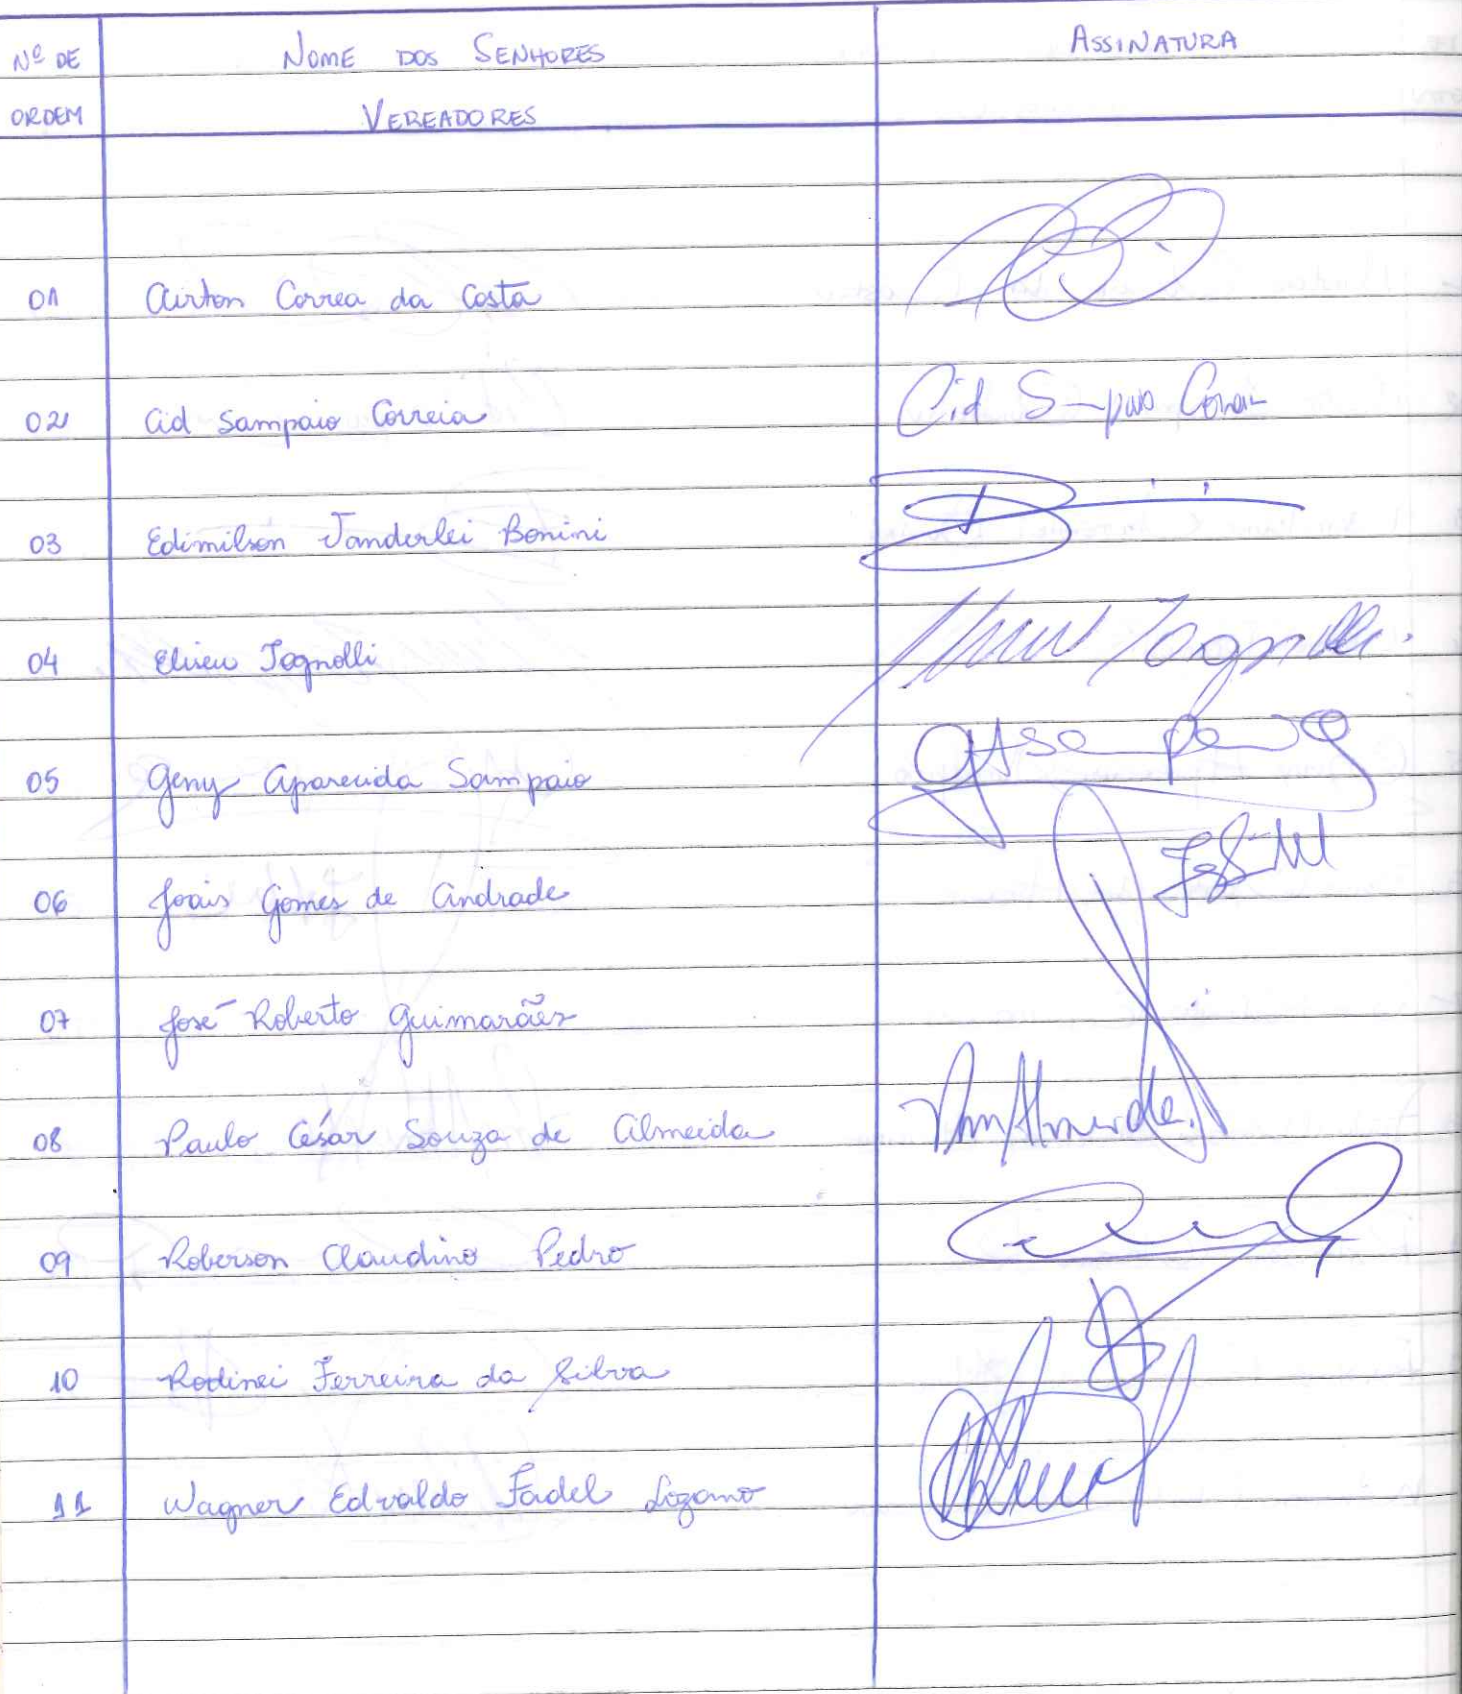 Nº DE NOME DOS SENHORES ASSINATURA
ORDEM VEREADORES
01 Airton Correa da Costa
02 Cid Sampaio Correia Cid
03 Edimilson Vanderlei Bonini
04 Eliseu Tognolli Tognolli
05 Geny Aparecida Sampaio
06 Joais Gomes de Andrade
07 José Roberto Guimarães
08 Paulo César Souza de Almeida Almeida
09 Roberson Claudino Pedro
10 Rodinei Ferreira da Silva
11 Wagner Edvaldo Fadel Lozano